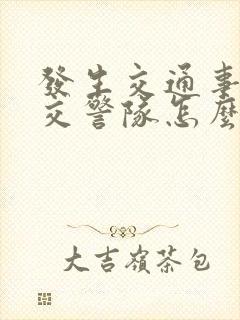 發生交通事
交警隊怎麼
大吉嶺茶包